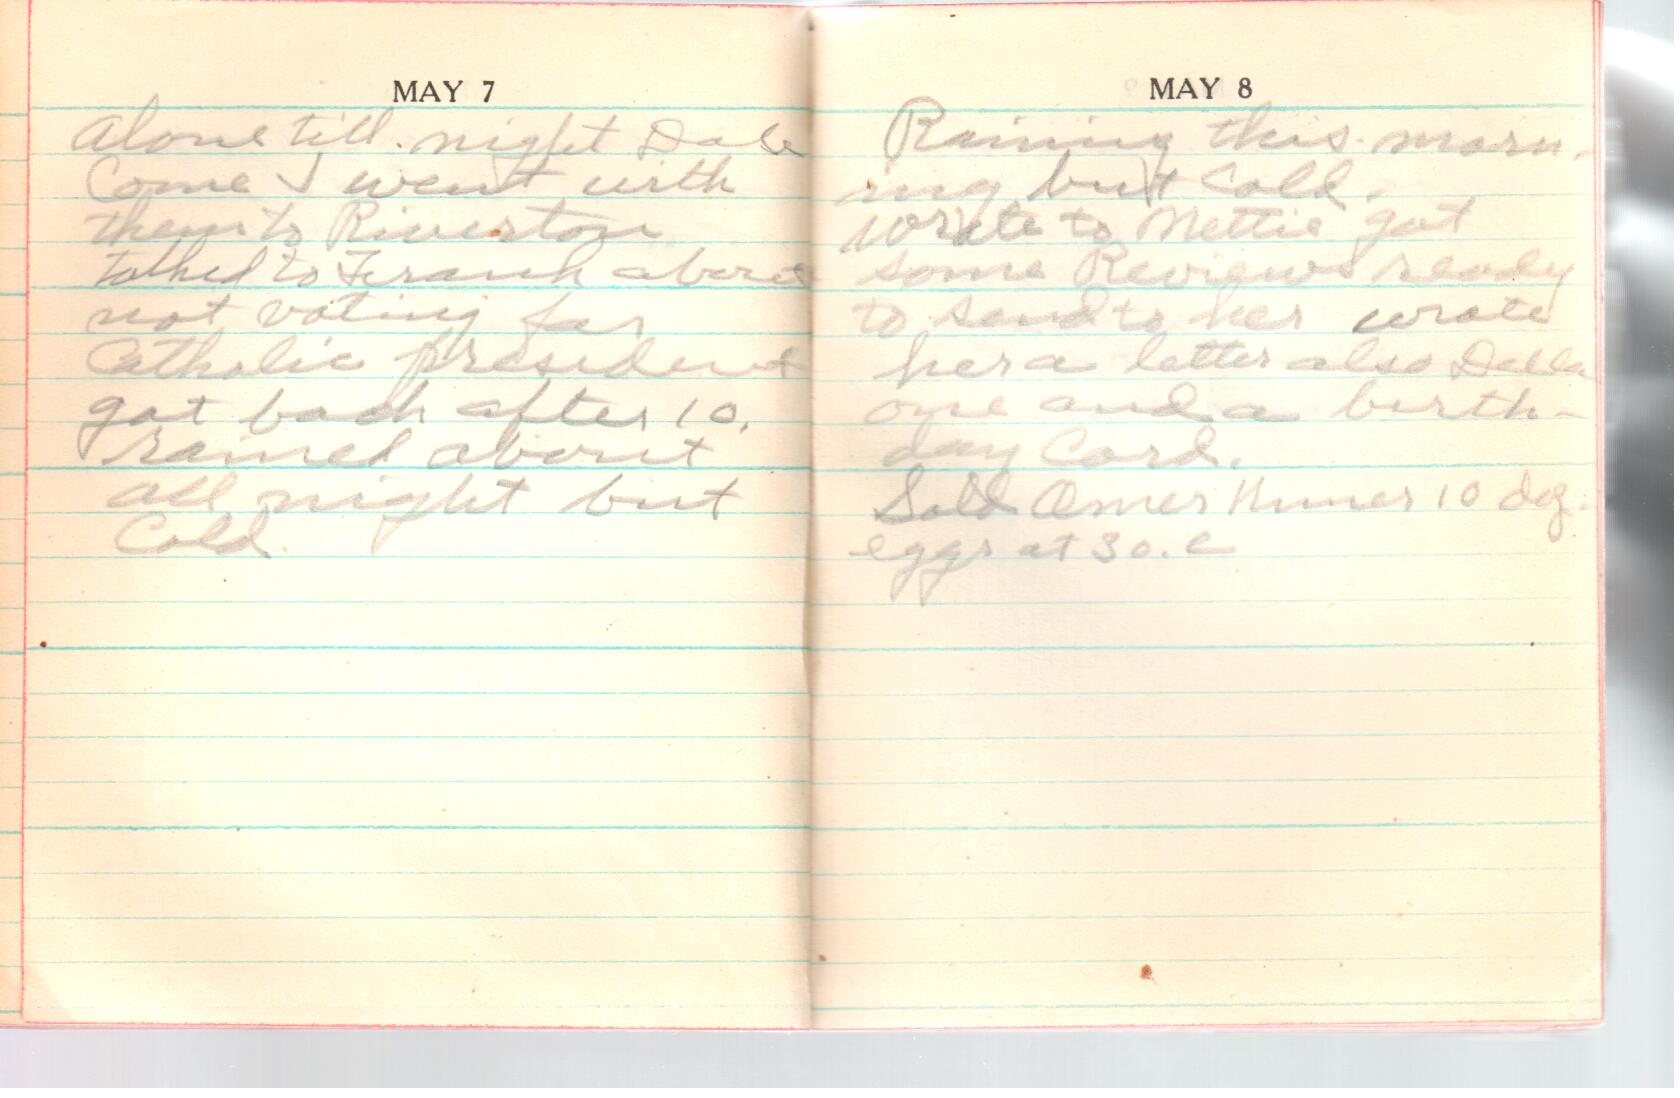 MAY 7
Alone till night Dale
Come I went with
them to Riverton
talked to Frank about
not voting for
Catholic president
got back after 10.
rained about
all night but
Cold.
MAY 8
Raining this morn-
ing but Cold.
wrote to Nettie got
some Reviews ready
to send to her wrote
her a letter also Della
one and a birth-
day Card.
Sold Omer 10 doz.
eggs at 30.c